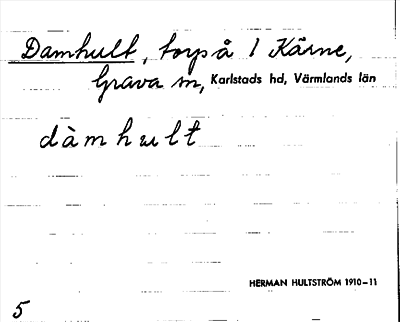 Damhult, torp å 1 Kärne,
Grava sn, Karlstads hd, Värmlands län
dàmhult
HERMAN HULTSTRÖM 1910–11
5